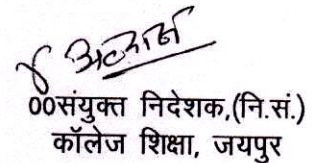 00संयुक्त निदेशक,(नि.सं.)
कॉलेज शिक्षा, जयपुर